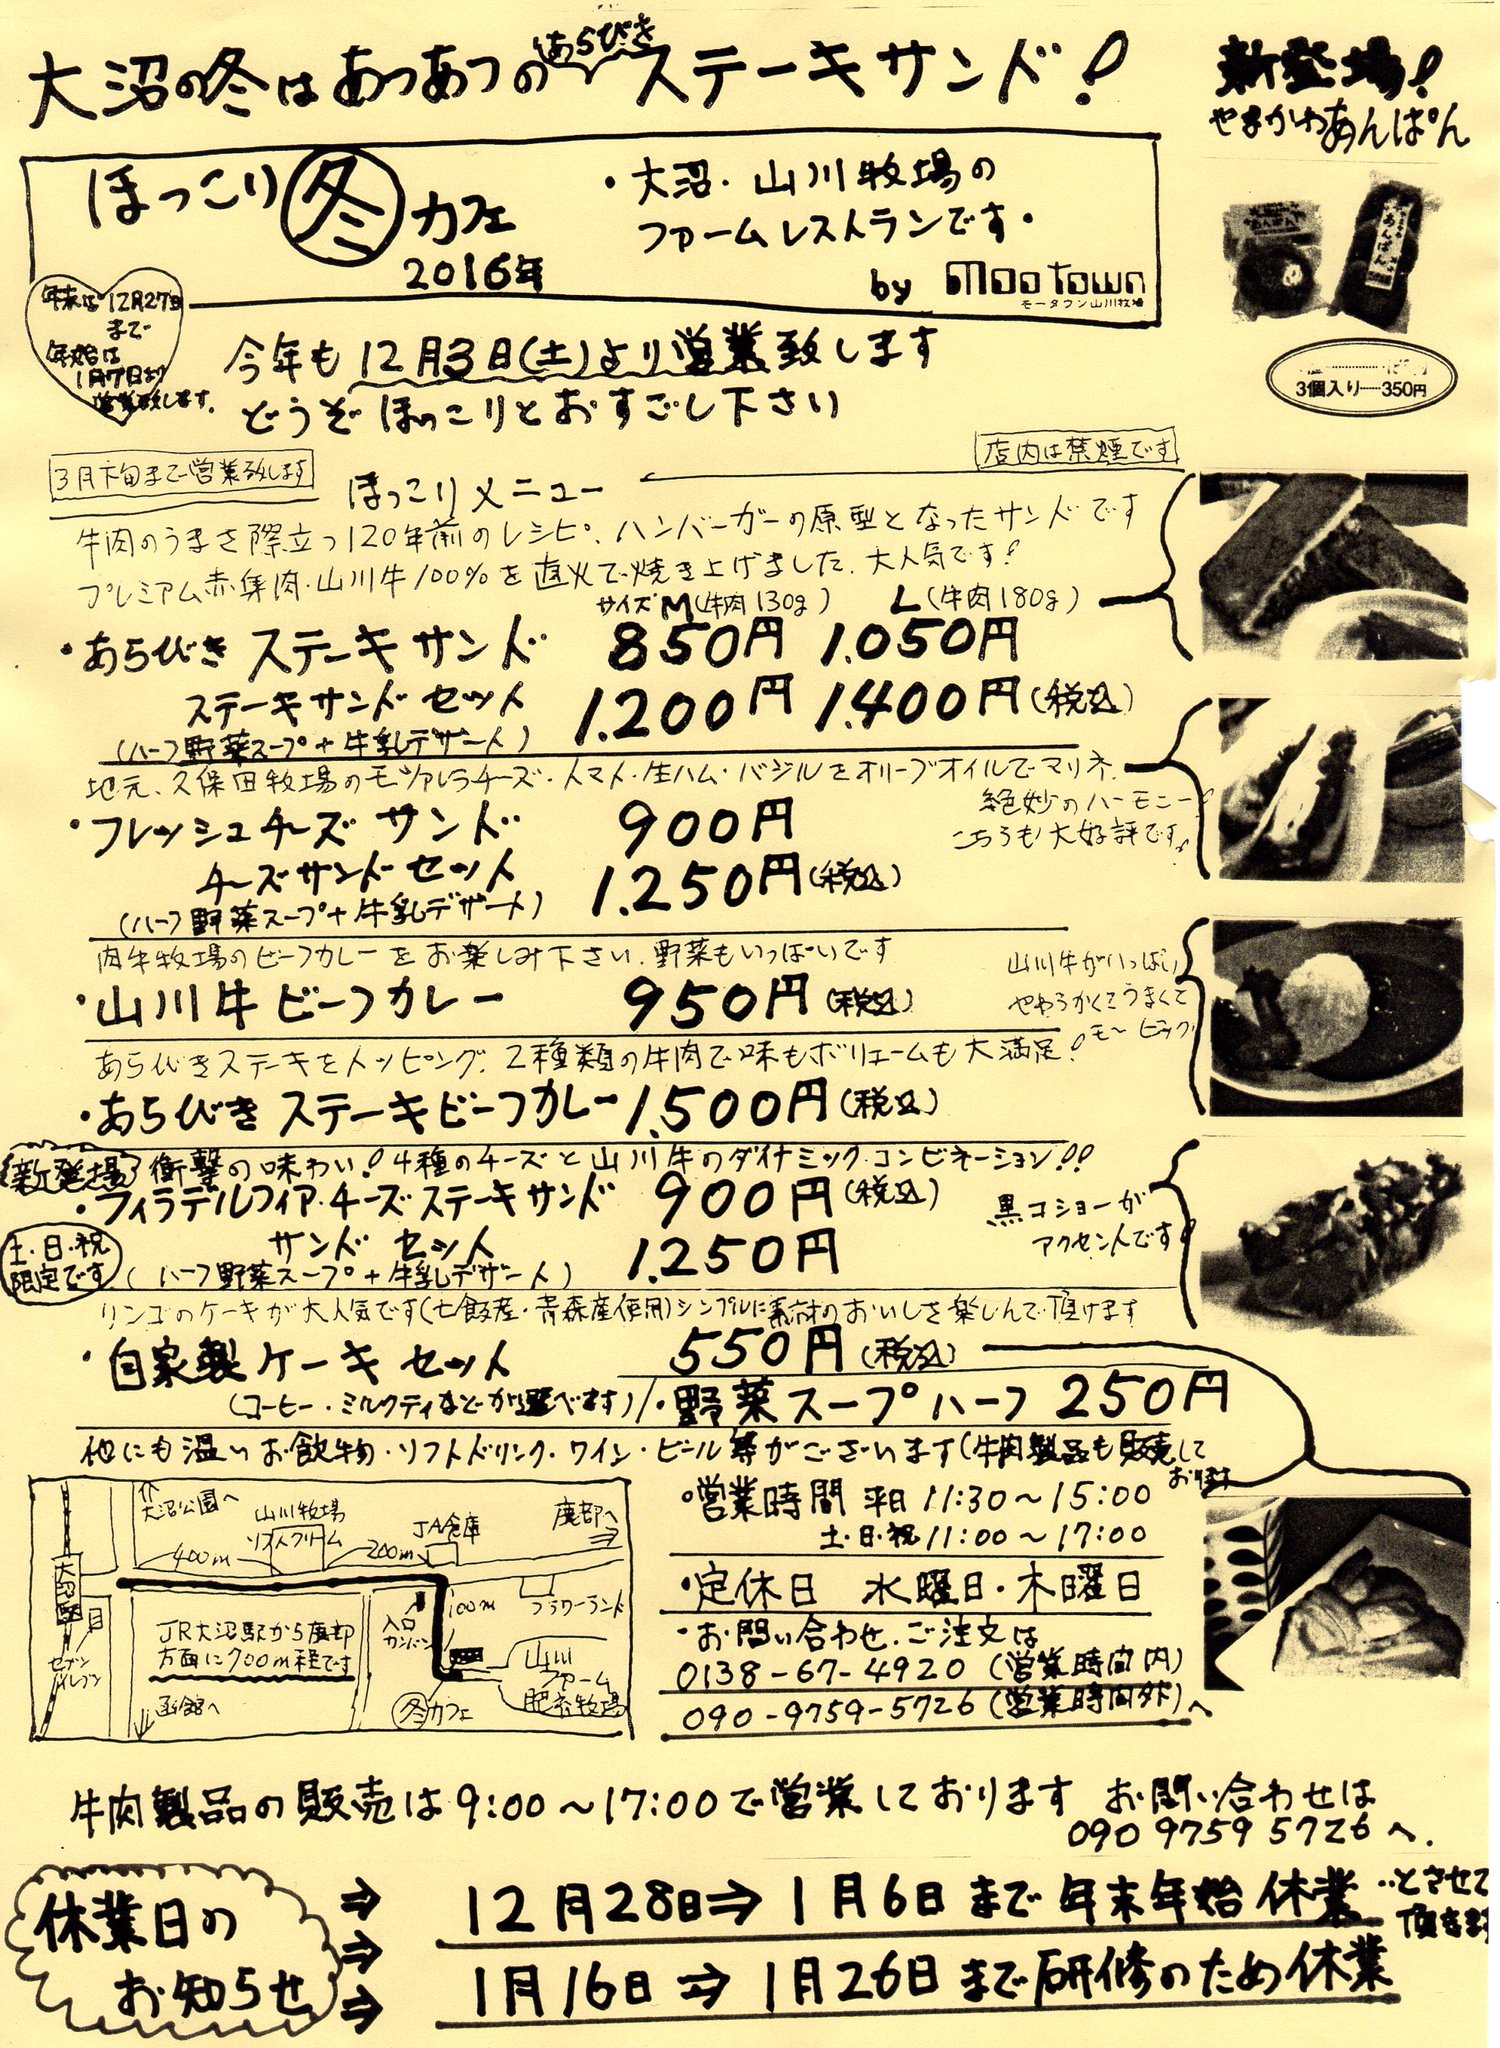 大沼の冬はあつあつのあらびきステーキサンド!
新登場!
やまかわあんぱん
ほっこり冬カフェ
2016年
・大沼・山川牧場の
ファームレストランです・
by Moo Town
モータウン山川牧場
年末は12月27日
まで
年始は
1月7日より
営業致します.
今年も12月3日(土)より営業致します
どうぞほっこりとおすごし下さい
3個入り 350円
3月下旬まで営業致します
店内は禁煙です
ほっこりメニュー
牛肉のうまさ際立つ120年前のレシピ、ハンバーガーの原型となったサンドです
プレミアム赤身肉・山川牛100%を直火で焼き上げました、大人気です!
サイズM(牛肉130g) L(牛肉180g)
・あらびきステーキサンド 850円 1.050円
ステーキサンドセット 1.200円 1.400円(税込)
(ハーフ野菜スープ+牛乳デザート)
地元、久保田牧場のモッツァレラチーズ・トマト・生ハム・バジルをオリーブオイルでマリネ.
絶妙のハーモニー!
こちらも大好評です!
・フレッシュチーズサンド 900円
チーズサンドセット 1.250円(税込)
(ハーフ野菜スープ+牛乳デザート)
肉牛牧場のビーフカレーをお楽しみ下さい、野菜もいっぱいです
・山川牛ビーフカレー 950円(税込)
山川牛がいっぱい
やわらかくてうまくて
モービック!
あらびきステーキをトッピング、2種類の牛肉で味もボリュームも大満足!
・あらびきステーキビーフカレー 1.500円(税込)
新登場 衝撃の味わい!4種のチーズと山川牛のダイナミック・コンビネーション!!
・フィラデルフィア・チーズステーキサンド 900円(税込)
黒コショーが
アクセントです!
土・日・祝
限定です
サンドセット 1.250円
(ハーフ野菜スープ+牛乳デザート)
リンゴのケーキが大人気です(七飯産・青森産使用)シンプルに素材のおいしさ楽しんで頂けます
・自家製ケーキセット 550円(税込)
(コーヒー・ミルクティなどから選べます)/・野菜スープハーフ 250円
他にも温いお飲物・ソフトドリンク・ワイン・ビール等がございます(牛肉製品も販売して
おります
大沼公園へ
山川牧場
ソフトクリーム
JA倉庫
鹿部へ
400m
200m
大沼駅
100m
フラワーランド
入口
カンバン
JR大沼駅から鹿部
方面に700m程です
セブン
イレブン
函館へ
山川
ファーム
肥育牧場
冬カフェ
・営業時間 平日 11:30〜15:00
土・日・祝 11:00〜17:00
・定休日 水曜日・木曜日
・お問い合わせ、ご注文は
0138-67-4920(営業時間内)
090-9759-5726(営業時間外)へ
牛肉製品の販売は9:00〜17:00で営業しております お問い合わせは
090 9759 5726へ.
休業日の
お知らせ
⇒ 12月28日⇒1月6日まで年末年始休業 ‥とさせて
頂きます
⇒
⇒ 1月16日⇒1月26日まで研修のため休業